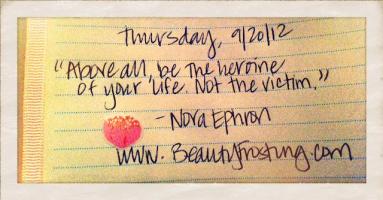 Thursday, 9/20/12
"Above all, be the heroine
of your life. Not the victim."
- Nora Ephron
www.BeautyFrosting.com